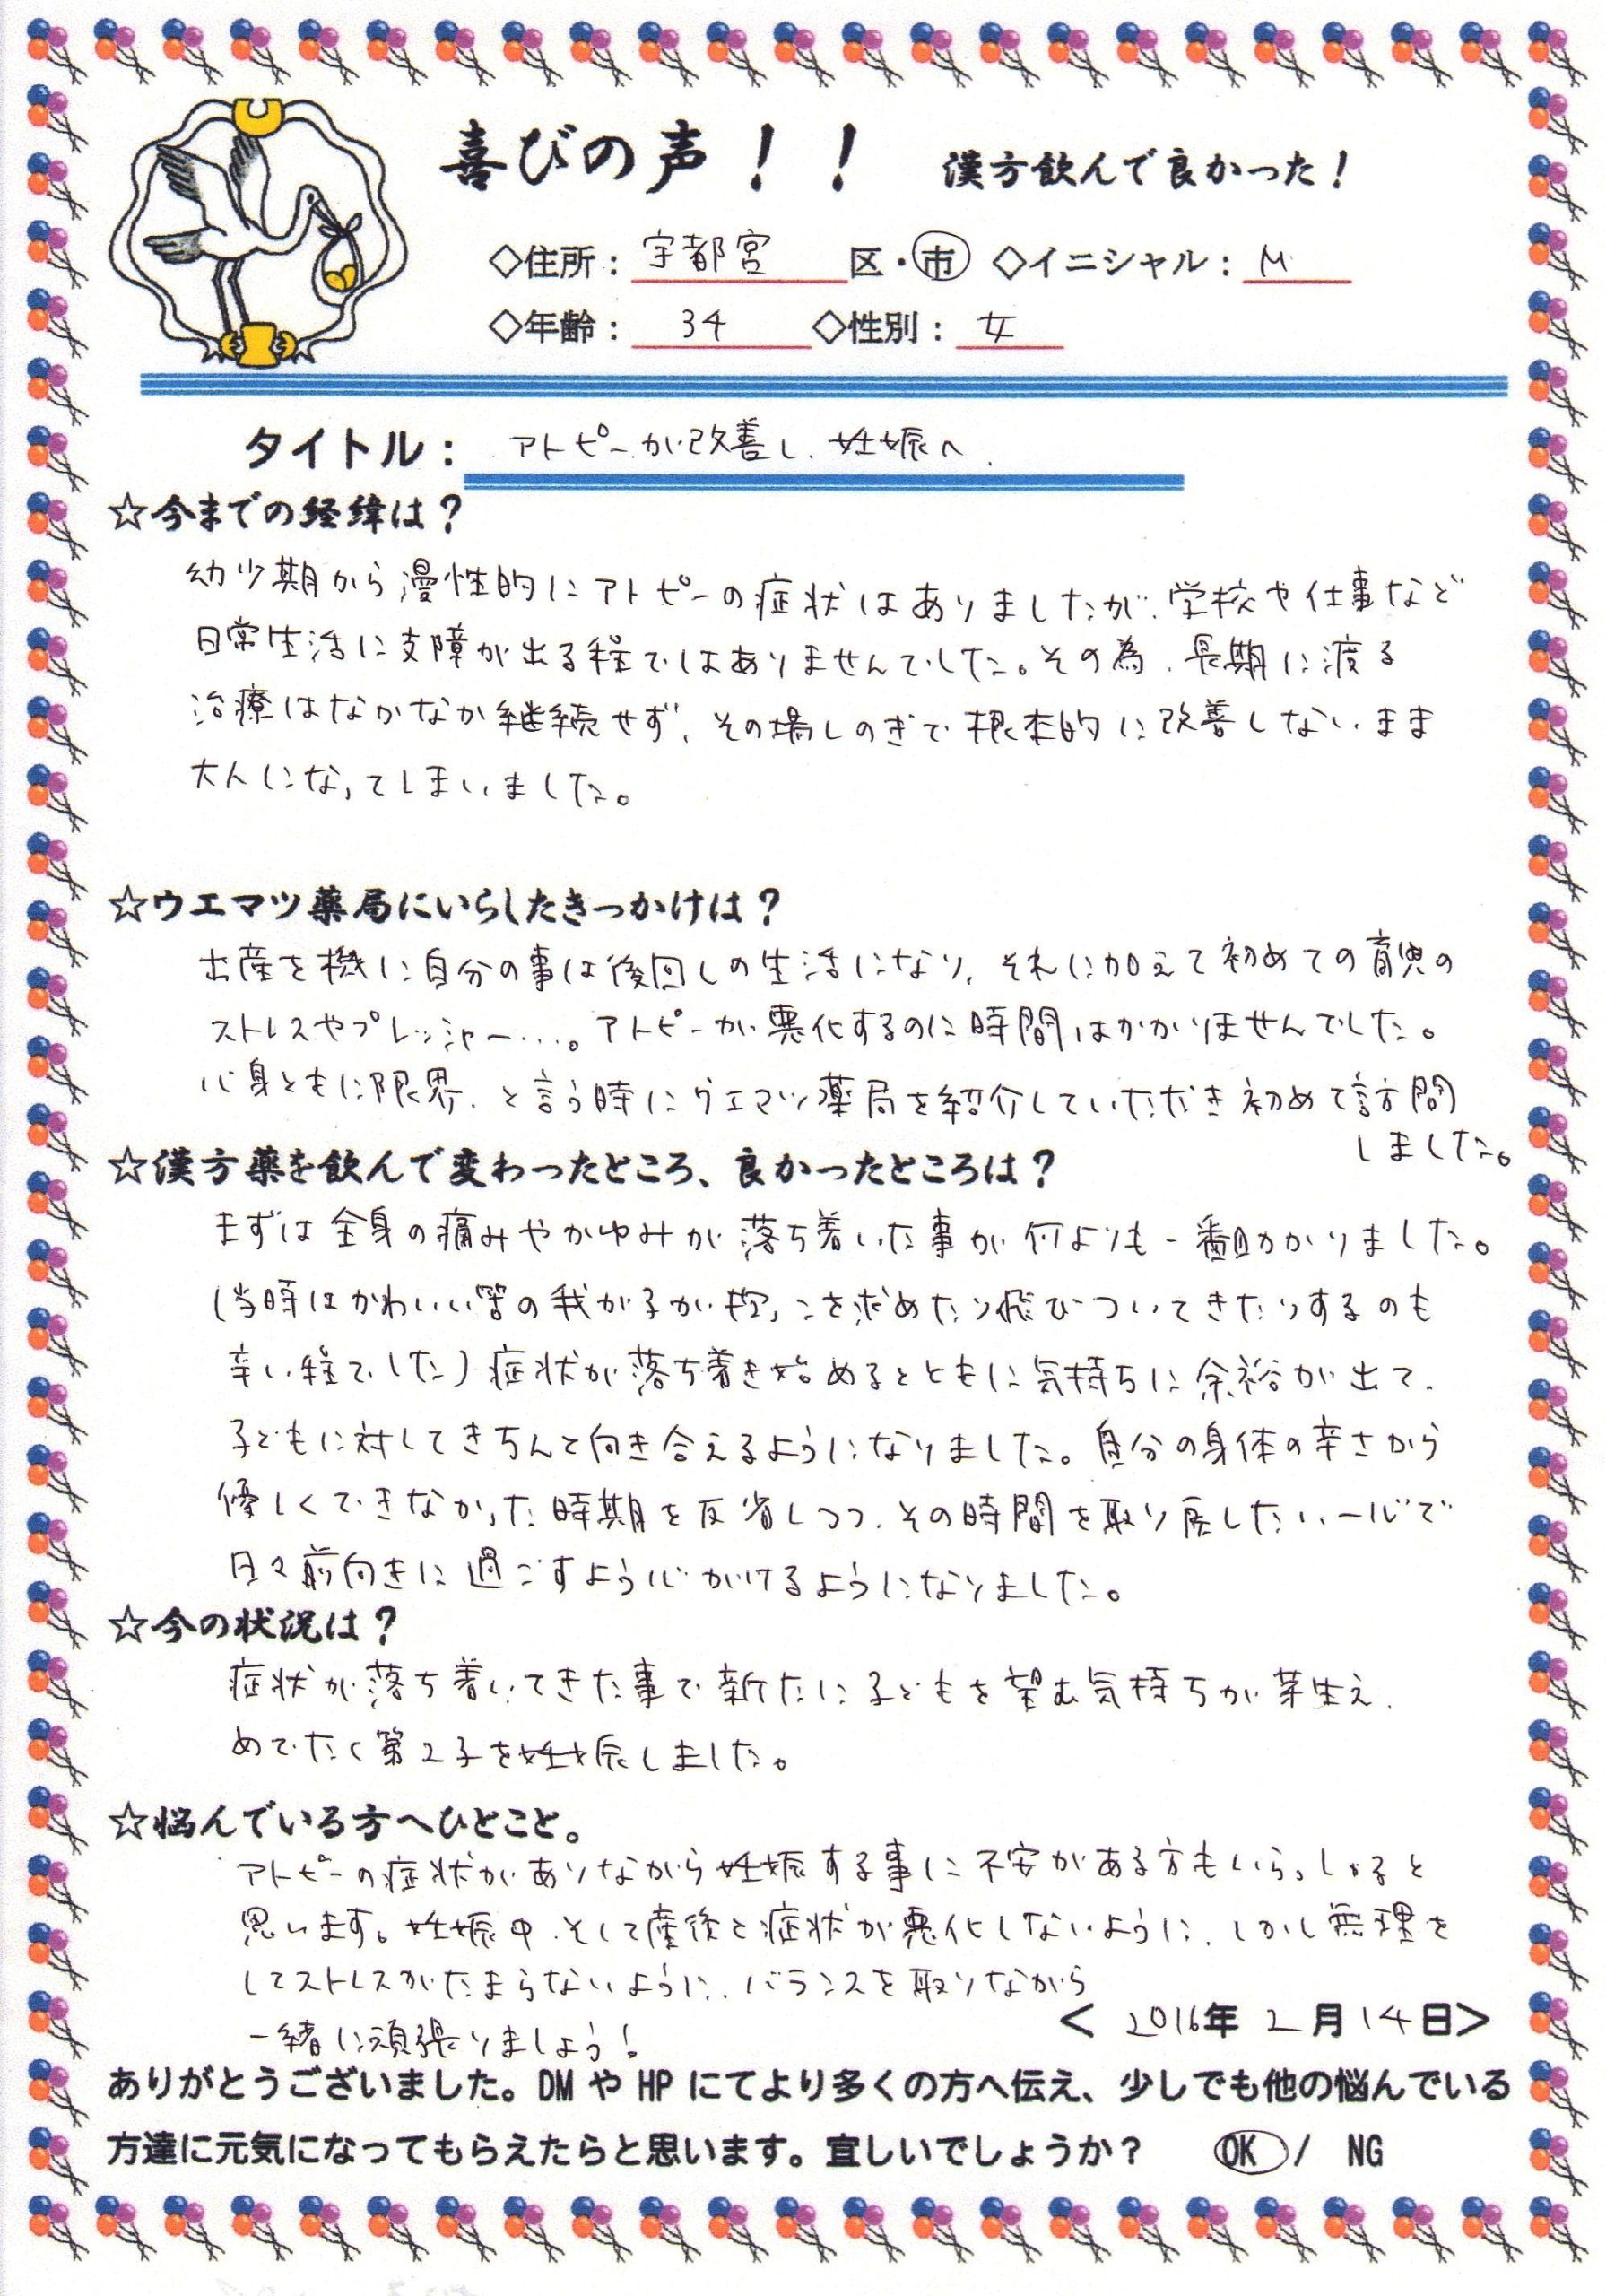 喜びの声！！　漢方飲んで良かった！
◇住所：宇都宮　区・市　◇イニシャル：M
◇年齢：34　◇性別：女
タイトル：アトピーが改善し、妊娠へ、
☆今までの経緯は？
幼少期から漫性的にアトピーの症状はありましたが、学校や仕事など
日常生活に支障が出る程ではありませんでした。その為、長期に渡る
治療はなかなか継続せず、その場しのぎで根本的に改善しないまま
大人になってしまいました。
☆ウエマツ薬局にいらしたきっかけは？
出産を機に自分の事は後回しの生活になり、それに加えて初めての育児の
ストレスやプレッシャー…。アトピーが悪化するのに時間はかかりませんでした。
心身ともに限界、と言う時にウエマツ薬局を紹介していただき初めて訪問
しました。
☆漢方薬を飲んで変わったところ、良かったところは？
まずは全身の痛みやかゆみが落ち着いた事が何よりも一番助かりました。
（当時はかわいい筈の我が子が抱っこを求めたり飛びついてきたりするのも
辛い程でした）症状が落ち着き始めるとともに気持ちに余裕が出て、
子どもに対してきちんと向き合えるようになりました。自分の身体の辛さから
優しくできなかった時期を反省しつつ、その時間を取り戻したい一心で
日々前向きに過ごすよう心がけるようになりました。
☆今の状況は？
症状が落ち着いてきた事で新たに子どもを望む気持ちが芽生え、
めでたく第2子を妊娠しました。
☆悩んでいる方へひとこと。
アトピーの症状がありながら妊娠する事に不安がある方もいらっしゃると
思います。妊娠中、そして産後と症状が悪化しないように、しかし無理を
してストレスがたまらないように、バランスを取りながら
一緒に頑張りましょう！
＜2016年2月14日＞
ありがとうございました。DMやHPにてより多くの方へ伝え、少しでも他の悩んでいる
方達に元気になってもらえたらと思います。宜しいでしょうか？　OK／NG